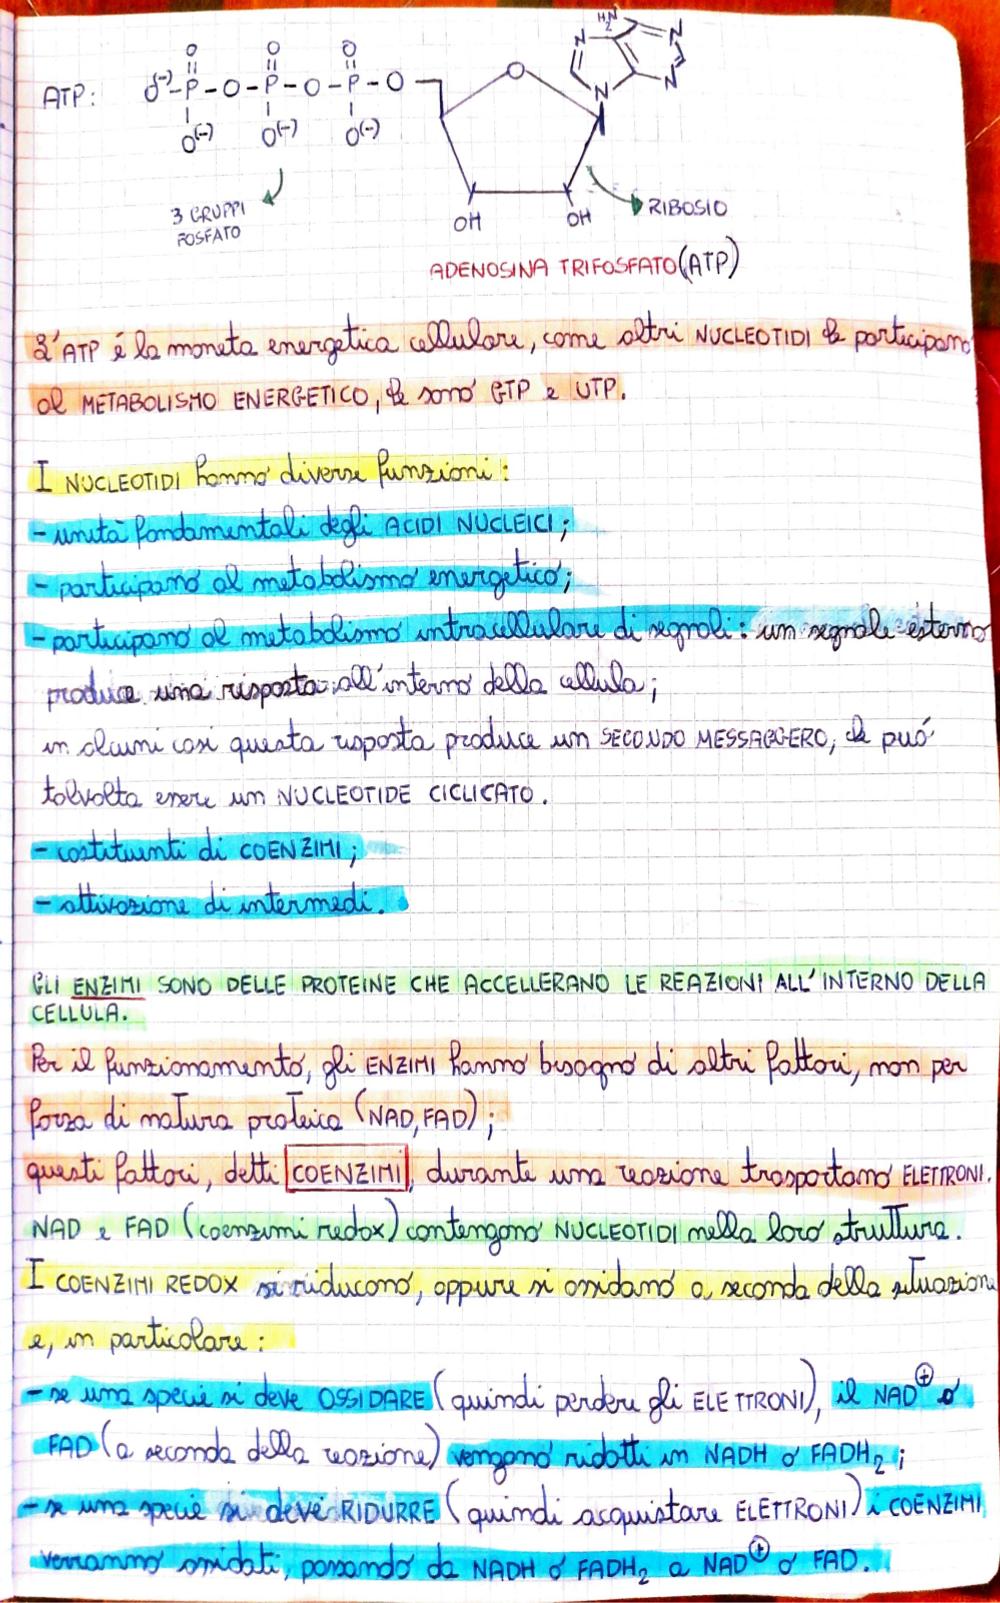 ATP: O(-)-P-O-P-O-P-O
O O O
O(-) O(-) O(-)
H2N N N N N
O
OH OH
3 GRUPPI
FOSFATO
RIBOSIO
ADENOSINA TRIFOSFATO (ATP)
L'ATP é la moneta energetica cellulare, come altri NUCLEOTIDI che partecipano
al METABOLISMO ENERGETICO, che sono GTP e UTP.
I NUCLEOTIDI hanno diverse funzioni:
- unità fondamentali degli ACIDI NUCLEICI;
- participano al metabolismo energetico;
- participano al metabolismo intracellulare di segnali: un segnale esterno
produce una risposta all'interno della cellula;
in alcuni casi questa risposta produce un SECONDO MESSAGGERO, che può
talvolta essere un NUCLEOTIDE CICLICATO.
- costituenti di COENZIMI;
- attivazione di intermedi.
GLI ENZIMI SONO DELLE PROTEINE CHE ACCELLERANO LE REAZIONI ALL'INTERNO DELLA
CELLULA.
Per il funzionamento, gli ENZIMI hanno bisogno di altri fattori, non per
forza di natura proteica (NAD, FAD);
questi fattori, detti COENZIMI, durante una reazione trasportano ELETTRONI.
NAD e FAD (coenzimi redox) contengono NUCLEOTIDI nella loro struttura.
I COENZIMI REDOX si riducono, oppure si ossidano a seconda della situazione
e, in particolare:
- se una specie si deve OSSIDARE (quindi perdere gli ELETTRONI), il NAD⊕ o
FAD (a seconda della reazione) vengono ridotti in NADH o FADH2;
- se una specie si deve RIDURRE (quindi acquistare ELETTRONI) i COENZIMI
verranno ossidati, passando da NADH o FADH2 a NAD⊕ o FAD.